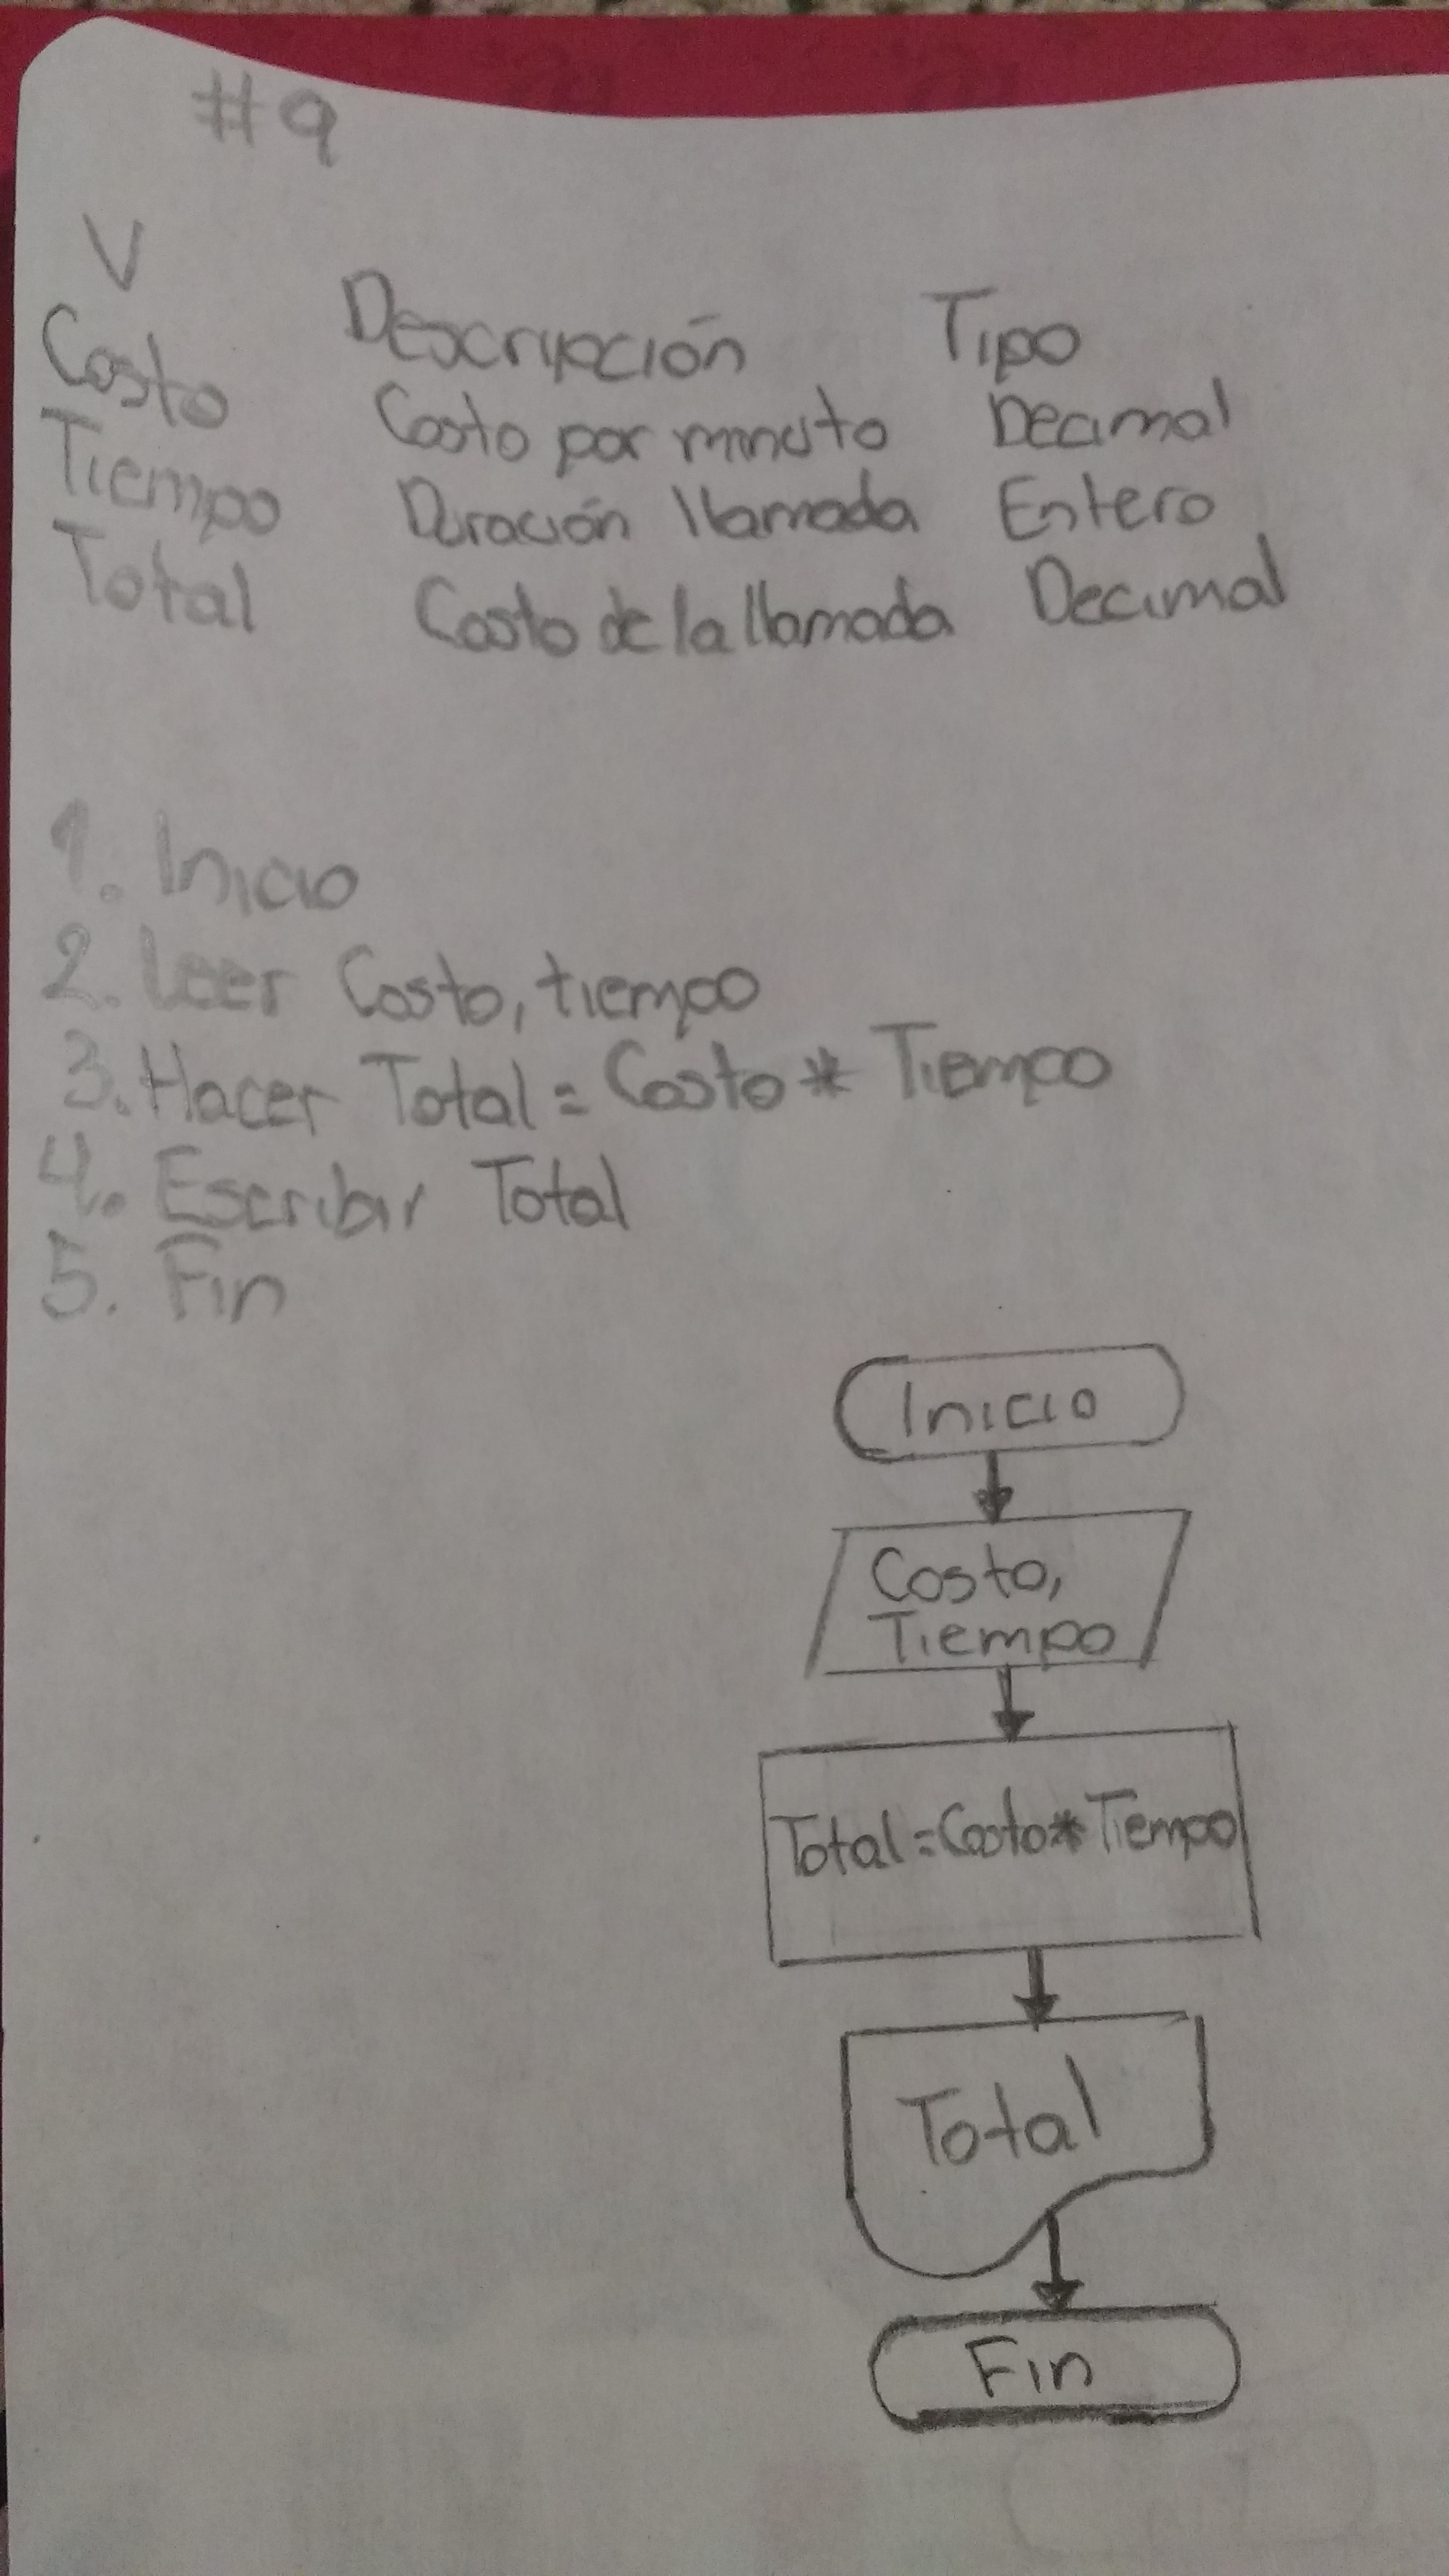 #9
V Descripción Tipo
Costo Costo por minuto Decimal
Tiempo Duración llamada Entero
Total Costo de la llamada Decimal
1. Inicio
2. Leer Costo, tiempo
3. Hacer Total = Costo * Tiempo
4. Escribir Total
5. Fin
Inicio
Costo,
Tiempo
Total = Costo * Tiempo
Total
Fin